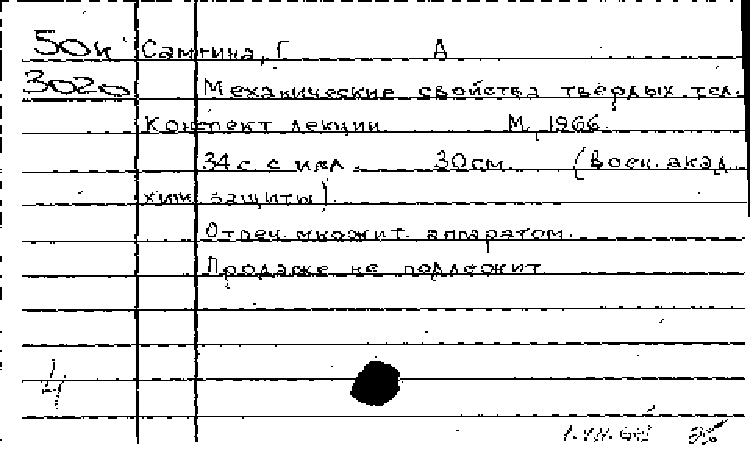 50к Самгина, Г А
3020 Механические свойства твердых тел.
Конспект лекции. М, 1966.
34с с илл. 30см. (Воен. акад
хим. защиты)
Отпеч. множит. аппаратом.
Продаже не подлежит
4